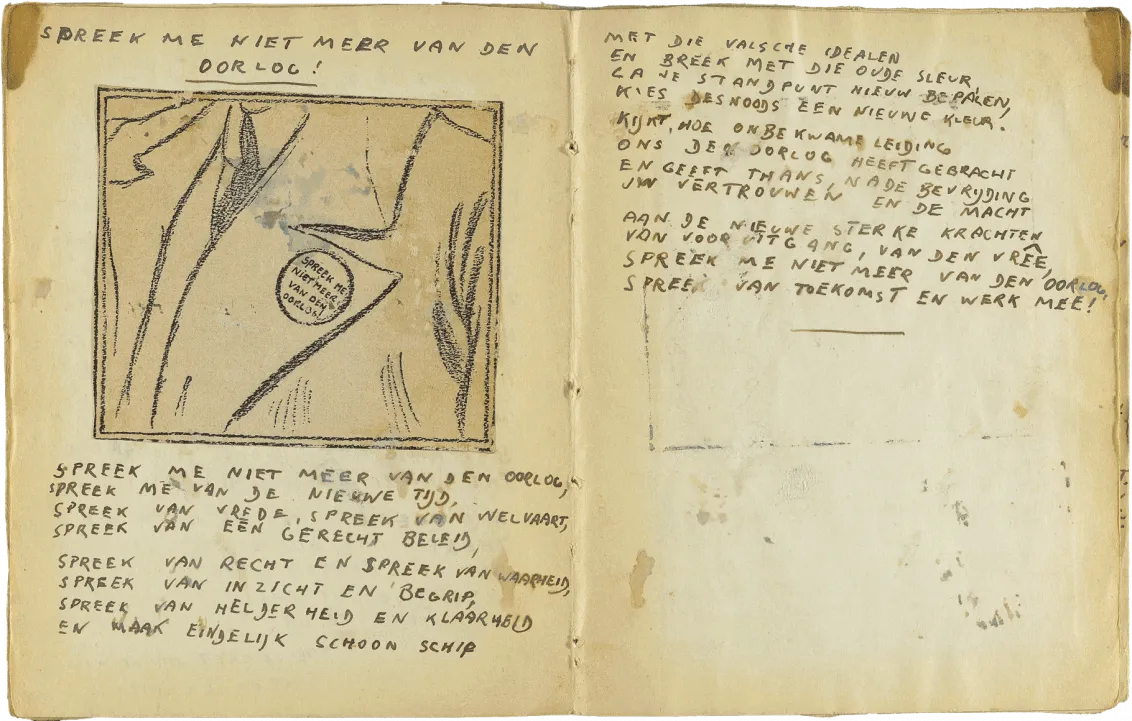 SPREEK ME NIET MEER VAN DEN
OORLOG!
SPREEK ME
NIET MEER
VAN DEN
OORLOG!
SPREEK ME NIET MEER VAN DEN OORLOG,
SPREEK ME VAN DE NIEUWE TIJD,
SPREEK VAN VREDE, SPREEK VAN WELVAART,
SPREEK VAN EEN GERECHT BELEID,
SPREEK VAN RECHT EN SPREEK VAN WAARHEID,
SPREEK VAN INZICHT EN BEGRIP,
SPREEK VAN HELDERHEID EN KLAARHEID
EN MAAK EINDELIJK SCHOON SCHIP
MET DIE VALSCHE IDEALEN
EN BREEK MET DIE OUDE SLEUR,
GA JE STANDPUNT NIEUW BEPALEN,
KIES DESNOODS EEN NIEUWE KLEUR.
KIJKT, HOE ONBEKWAME LEIDING
ONS DEN OORLOG HEEFT GEBRACHT
EN GEEFT THANS, NA DE BEVRIJDING
UW VERTROUWEN EN DE MACHT
AAN DE NIEUWE STERKE KRACHTEN
VAN VOORUITGANG, VAN DEN VREÊ,
SPREEK ME NIET MEER VAN DEN OORLOG,
SPREEK VAN TOEKOMST EN WERK MEE!